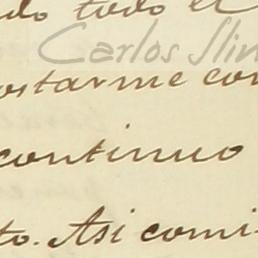 do todo el
Carlos Slim
ostarme con
continuo
to. Asi comi-